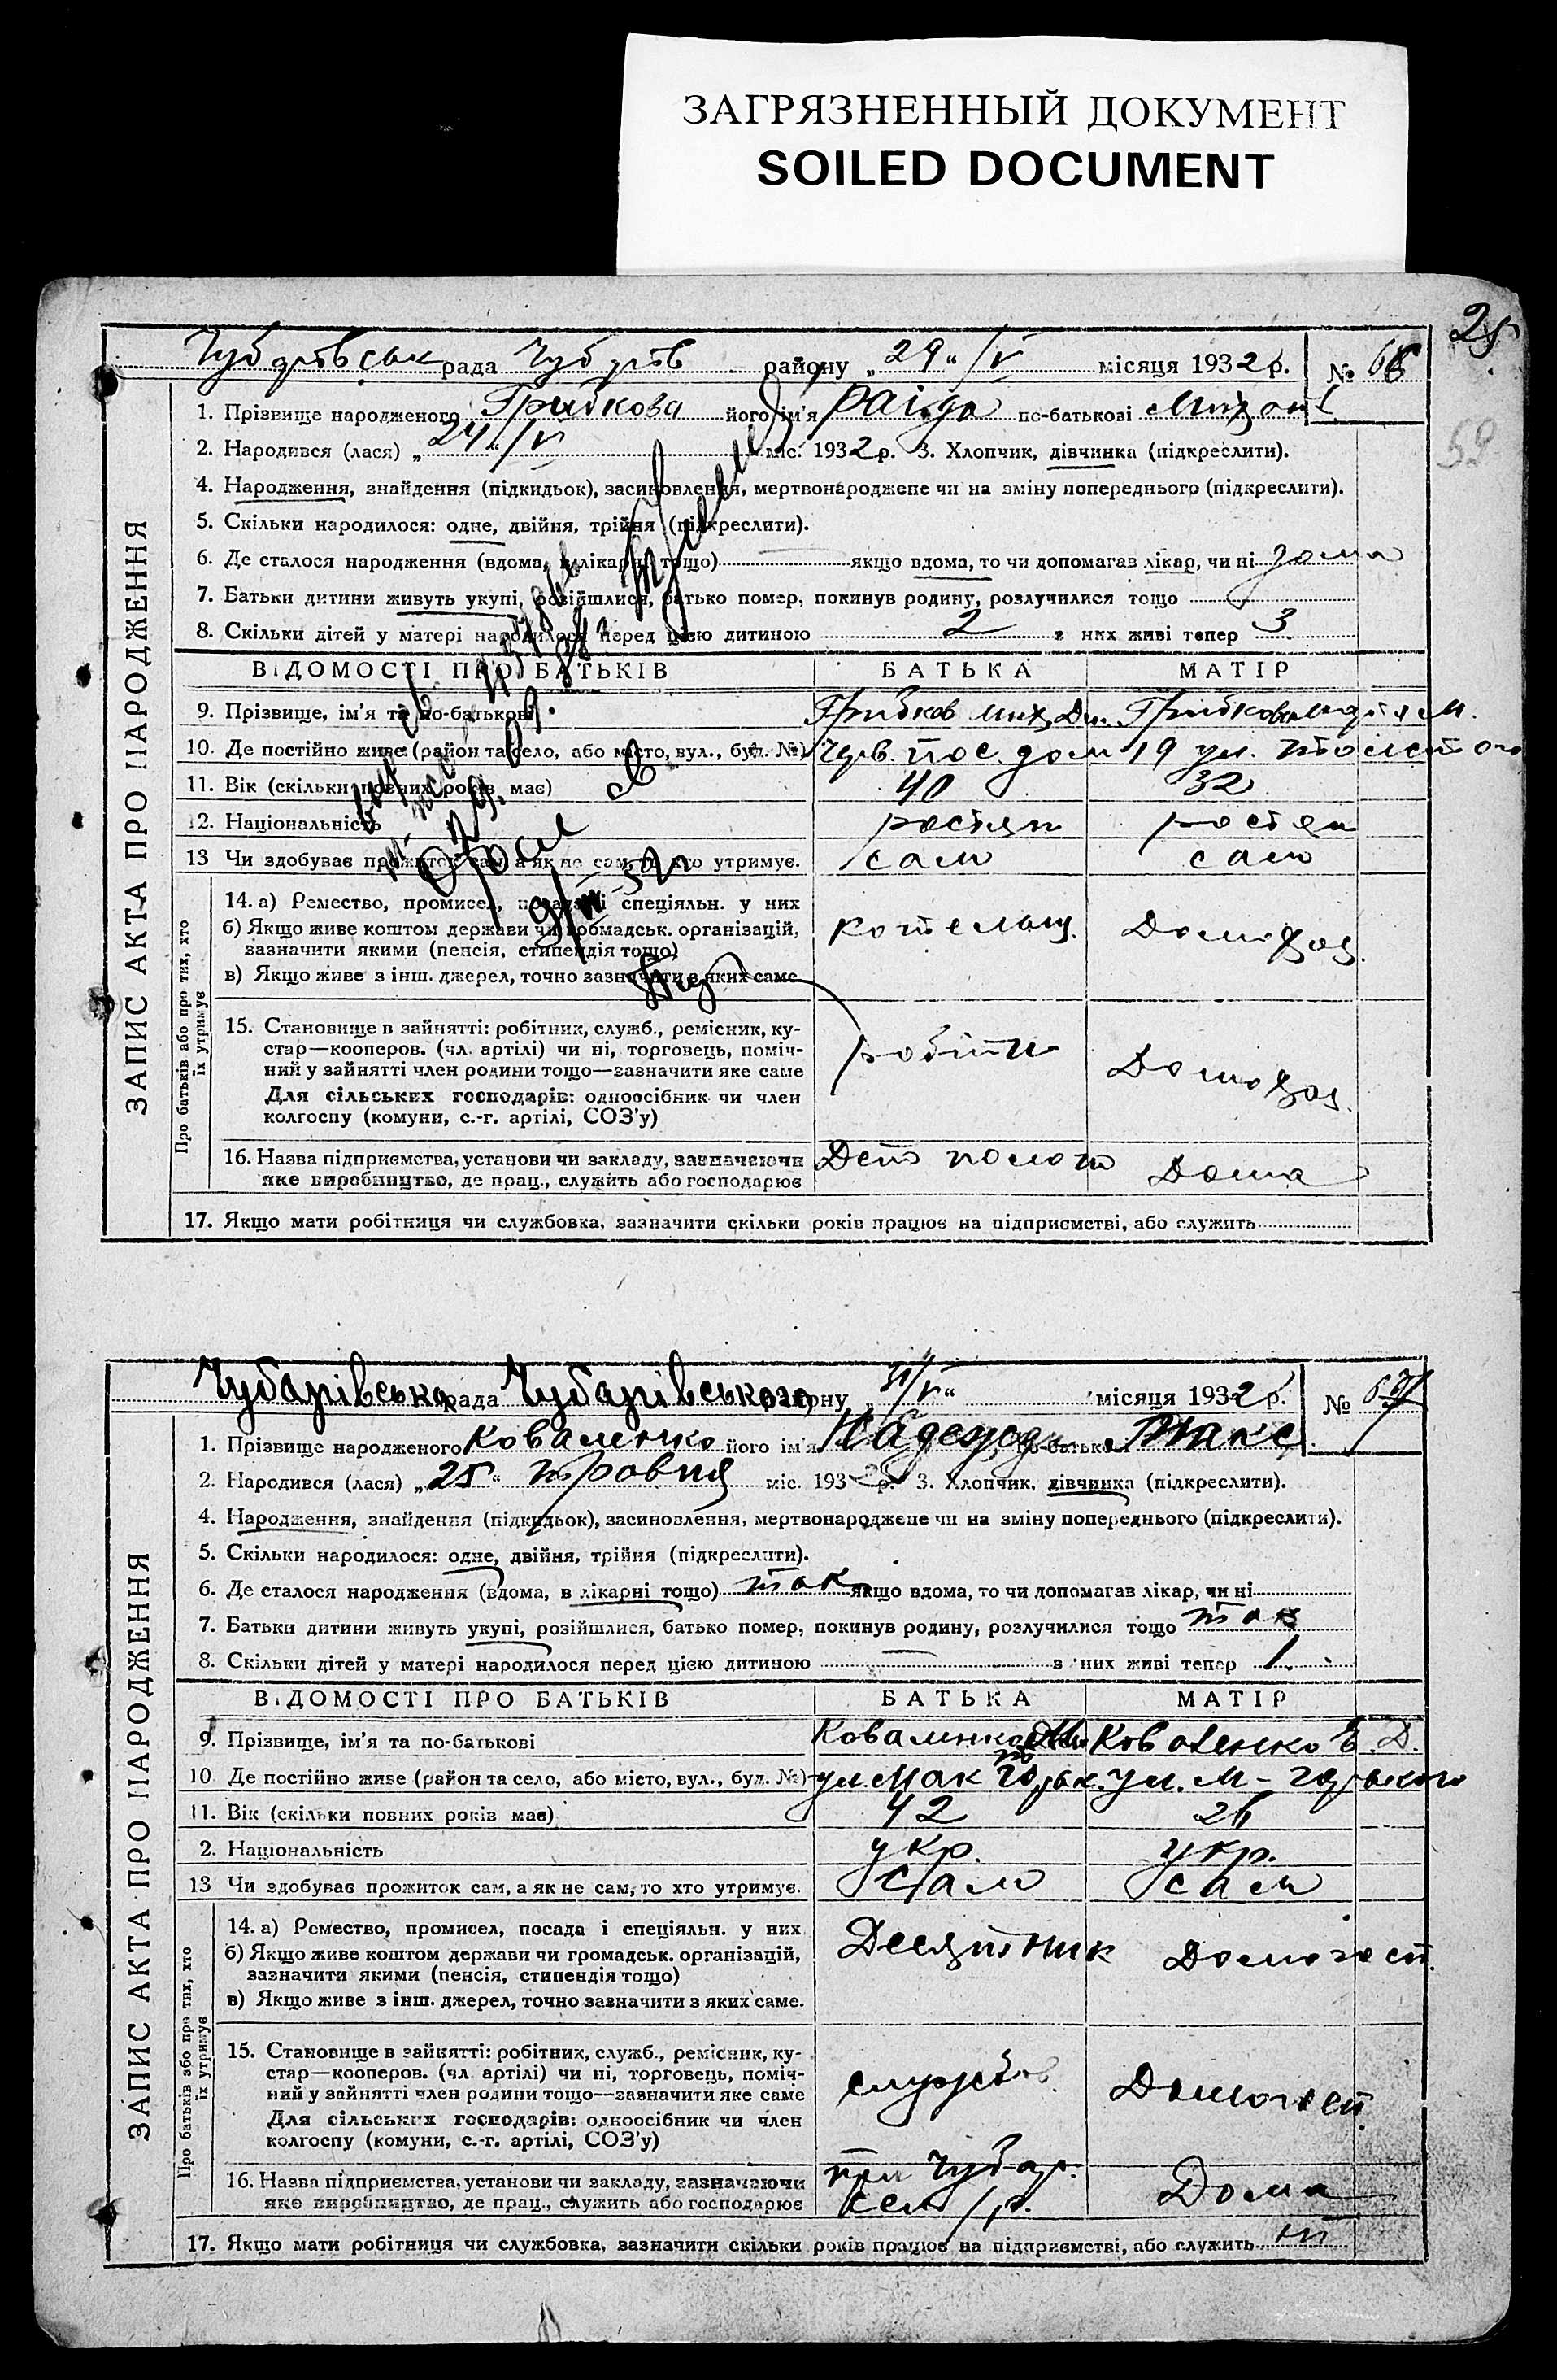 ЗАГРЯЗНЕННЫЙ ДОКУМЕНТ
SOILED DOCUMENT
28
рада району „29“/V місяця 1932 р. № 66
59
1. Прізвище народженого Грибкова його ім'я Раіда по-батькові
2. Народився (лася) „24“/V міс. 1932 р. 3. Хлопчик, дівчинка (підкреслити).
4. Народження, знайдення (підкидьок), засиновлення, мертвонароджене чи на зміну попереднього (підкреслити).
5. Скільки народилося: одне, двійня, трійня (підкреслити).
6. Де сталося народження (вдома, в лікарні тощо) якщо вдома, то чи допомагав лікар, чи ні
7. Батьки дитини живуть укупі, розійшлися, батько помер, покинув родину, розлучилися тощо
8. Скільки дітей у матері народилося перед цією дитиною 2 з них живі тепер 3
ВІДОМОСТІ ПРО БАТЬКІВ БАТЬКА МАТІР
9. Прізвище, ім'я та по-батькові Грибков Мих. Грибкова М.
10. Де постійно живе (район та село, або місто, вул., буд. №) Черв. пос. дом 19 ул.
11. Вік (скільки повних років має) 40 32
12. Національність
13 Чи здобуває прожиток сам, а як не сам, то хто утримує. сам сам
14. а) Ремество, промисел, посада і спеціяльн. у них
б) Якщо живе коштом держави чи громадськ. організацій,
зазначити якими (пенсія, стипендія тощо)
в) Якщо живе з інш. джерел, точно зазначити з яких саме
15. Становище в зайнятті: робітник, служб., ремісник, ку-
стар—кооперов. (чл. артілі) чи ні, торговець, поміч-
ний у зайнятті член родини тощо—зазначити яке саме
Для сільських господарів: одноосібник чи член
колгоспу (комуни, с.-г. артілі, СОЗ'у)
16. Назва підприємства, установи чи закладу, зазначаючи Депо Дома
яке виробництво, де прац., служить або господарює
17. Якщо мати робітниця чи службовка, зазначити скільки років працює на підприємстві, або служить
ЗАПИС АКТА ПРО НАРОДЖЕННЯ
Про батьків або про тих, хто
їх утримує
Чубарівська рада Чубарівського району „31/V“ місяця 1932 р. № 67
1. Прізвище народженого Коваленко його ім'я Надежда по-батькові Макс
2. Народився (лася) „25“ травня міс. 1932 р. 3. Хлопчик, дівчинка (підкреслити).
4. Народження, знайдення (підкидьок), засиновлення, мертвонароджене чи на зміну попереднього (підкреслити).
5. Скільки народилося: одне, двійня, трійня (підкреслити).
6. Де сталося народження (вдома, в лікарні тощо) так якщо вдома, то чи допомагав лікар, чи ні
7. Батьки дитини живуть укупі, розійшлися, батько помер, покинув родину, розлучилися тощо так
8. Скільки дітей у матері народилося перед цією дитиною — з них живі тепер 1
ВІДОМОСТІ ПРО БАТЬКІВ БАТЬКА МАТІР
9. Прізвище, ім'я та по-батькові Коваленко Коваленко Е. Д.
10 Де постійно живе (район та село, або місто, вул., буд. №) ул. Мак Горьк. ул. М-Горького
11. Вік (скільки повних років має) 42 26
2. Національність укр. укр.
13 Чи здобуває прожиток сам, а як не сам, то хто утримує. сам сам
14. а) Ремество, промисел, посада і спеціяльн. у них Десятник Домогосп.
б) Якщо живе коштом держави чи громадськ. організацій,
зазначити якими (пенсія, стипендія тощо)
в) Якщо живе з інш. джерел, точно зазначити з яких саме.
15. Становище в зайнятті: робітник, служб., ремісник, ку-
стар—кооперов. (чл. артілі) чи ні, торговець, поміч-
ний у зайнятті член родини тощо—зазначити яке саме службов. Домогосп.
Для сільських господарів: одноосібник чи член
колгоспу (комуни, с.-г. артілі, СОЗ'у)
16. Назва підприємства, установи чи закладу, зазначаючи при Чубар. Дома
яке виробництво, де прац., служить або господарює сел/р.
17. Якщо мати робітниця чи службовка, зазначити скільки років працює на підприємстві, або служить ні
ЗАПИС АКТА ПРО НАРОДЖЕННЯ
Про батьків або про тих, хто
їх утримує